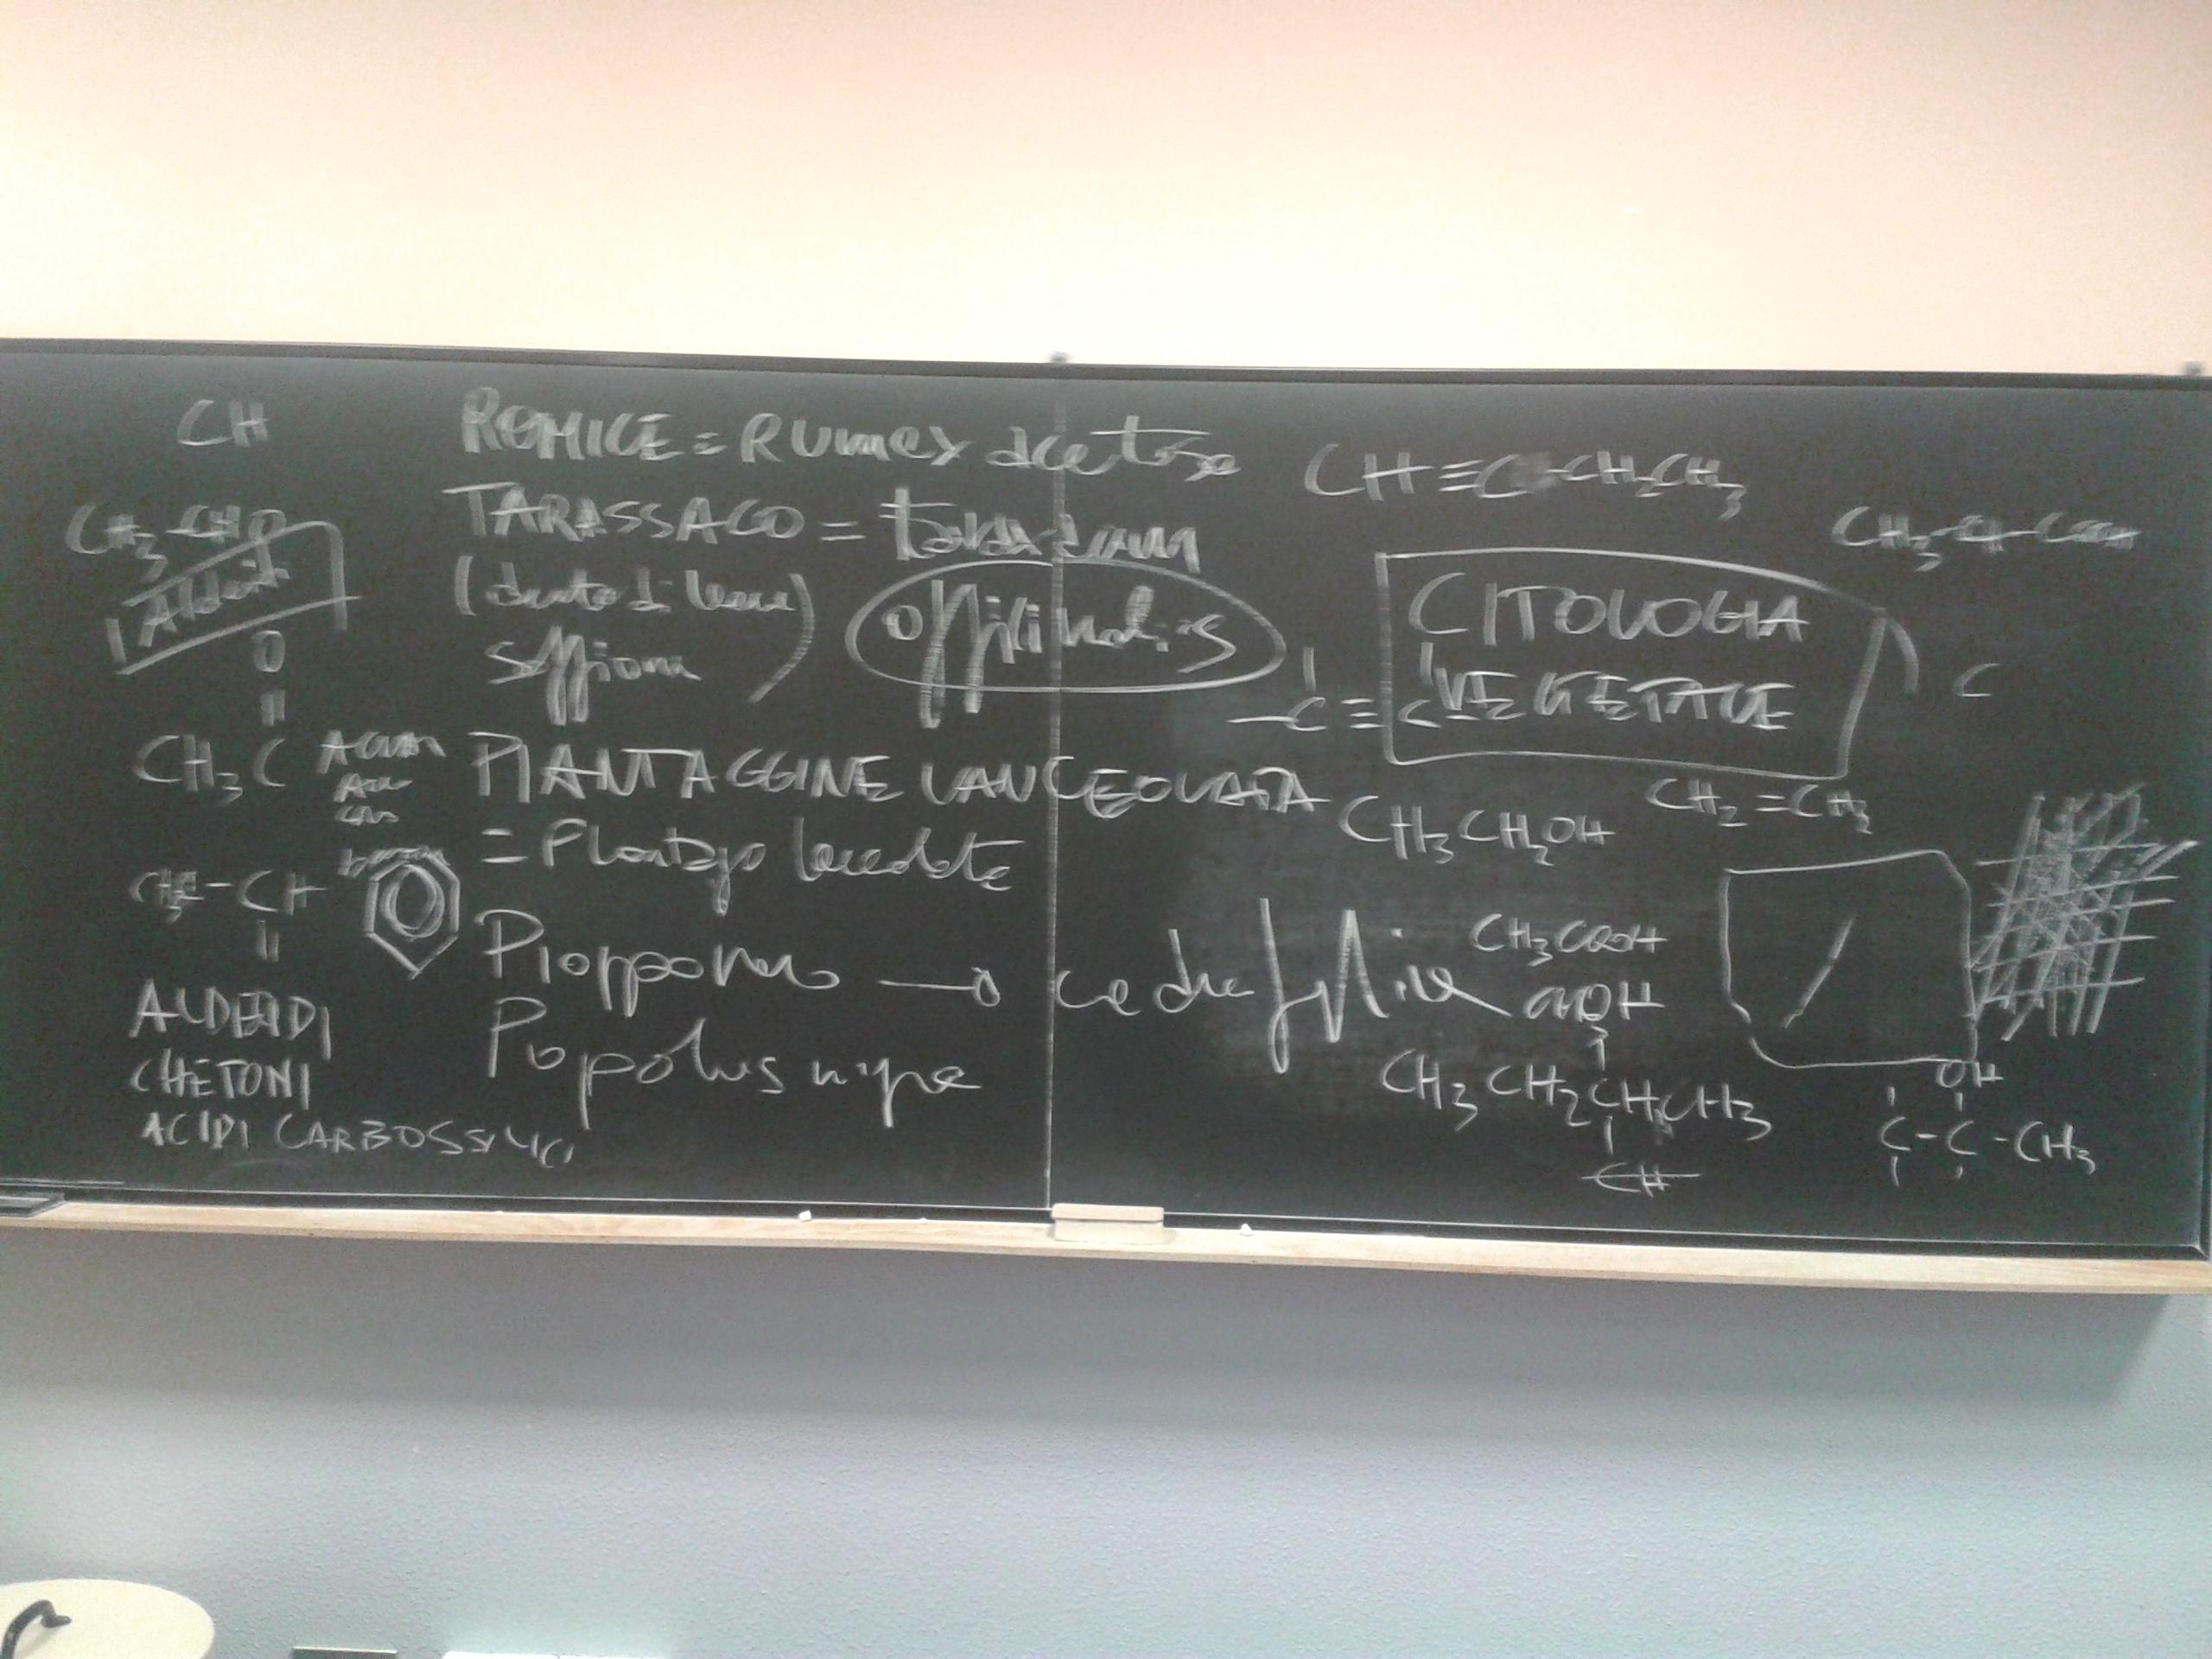 CH
CH3-CHO
O
||
CH3C
CH
||
ALDEIDI
CHETONI
ACIDI CARBOSSILICI
ROMICE = RUmex acetosa
TARASSACO = taraxacum
(dente di leone) officinalis
soffione
PIANTAGGINE LANCEOLATA
= Plantago lanceolata
Pioppo nero → caducifolia
Populus nigra
CH≡C-CH2CH3
CH3-CH-COOH
CITOLOGIA
VEGETALE
-C≡C-
C
CH2=CH2
CH3CH2OH
CH3COOH
OH
CH3CH2CHCH3
CH
OH
C-C-CH3